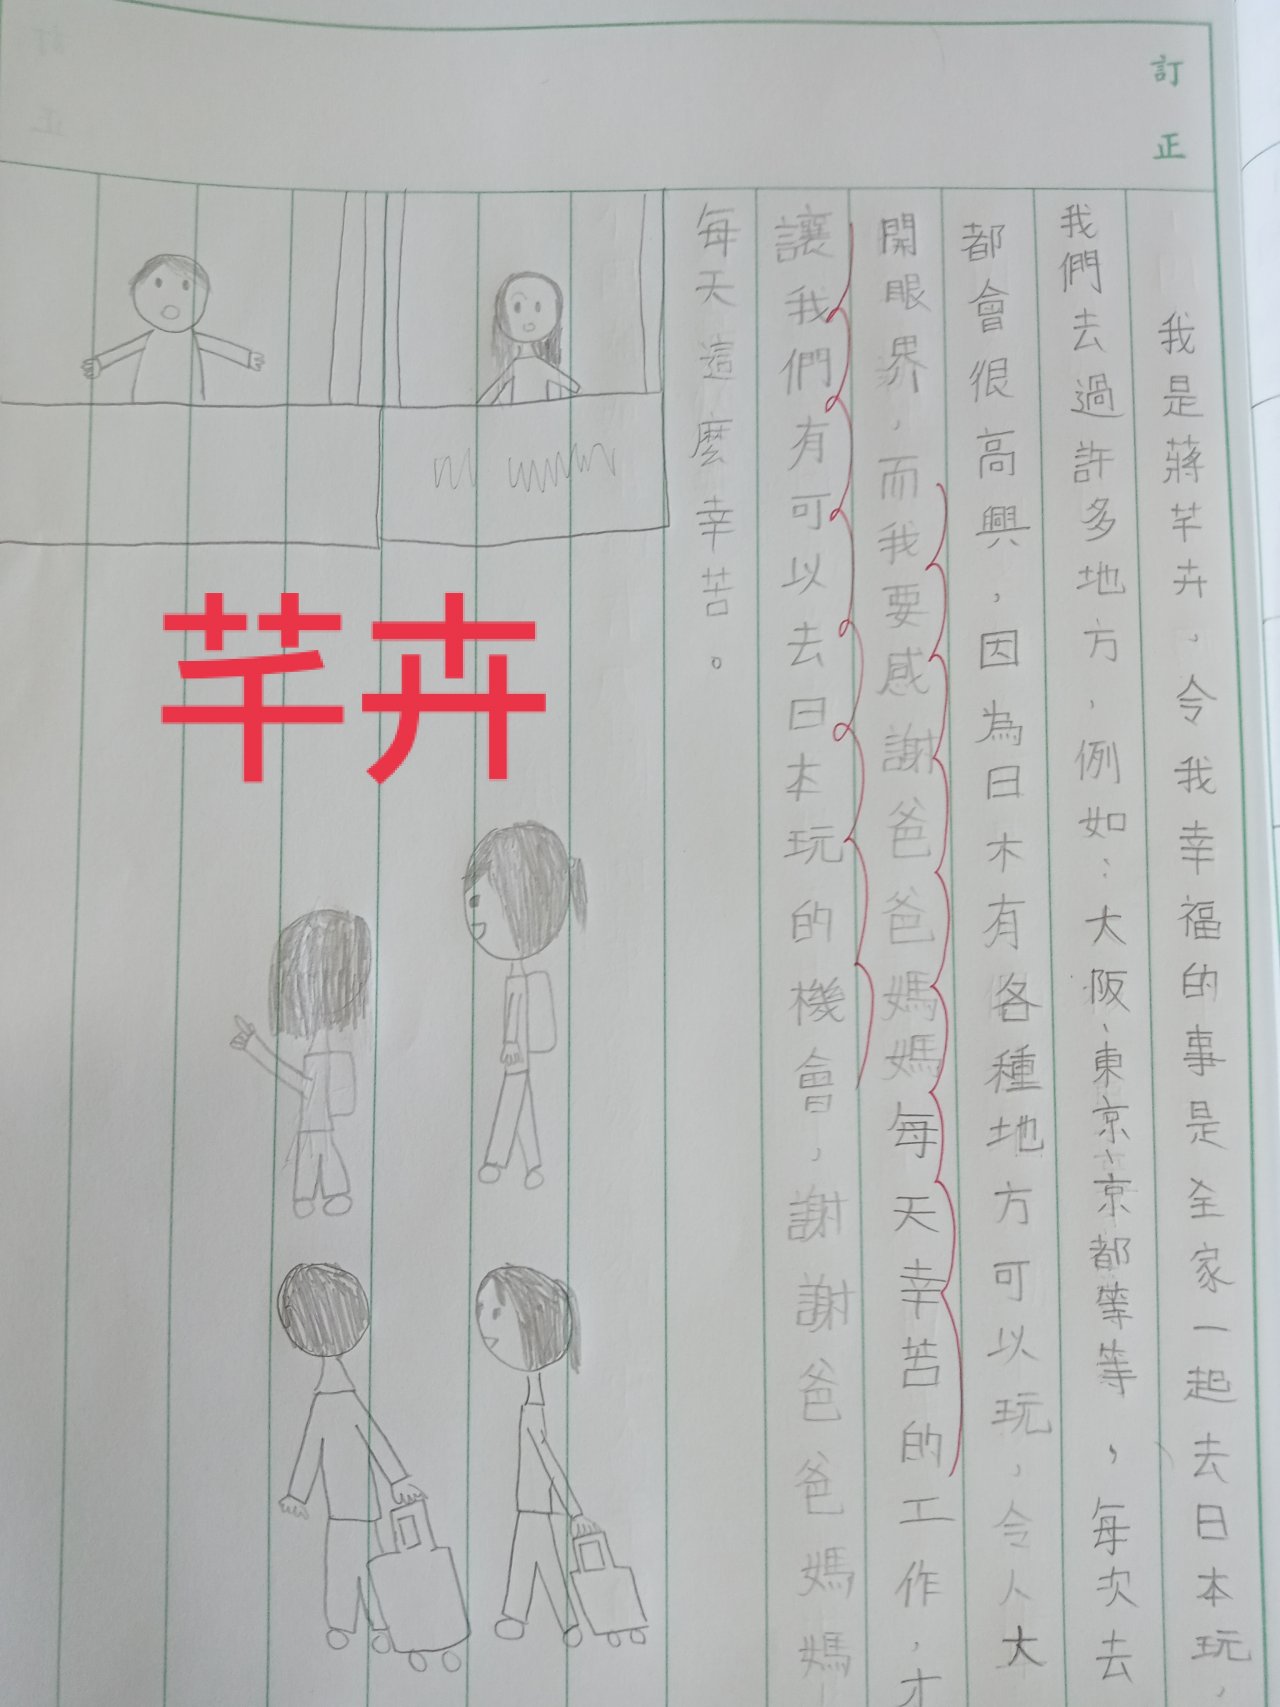 訂正
我是蔣芊卉，令我幸福的事是全家一起去日本玩，
我們去過許多地方，例如：大阪、東京、京都等等，每次去
都會很高興，因為日本有各種地方可以玩，令人大
開眼界，而我要感謝爸爸媽媽每天幸苦的工作，才
讓我們有可以去日本玩的機會，謝謝爸爸媽媽
每天這麼幸苦。
芊卉